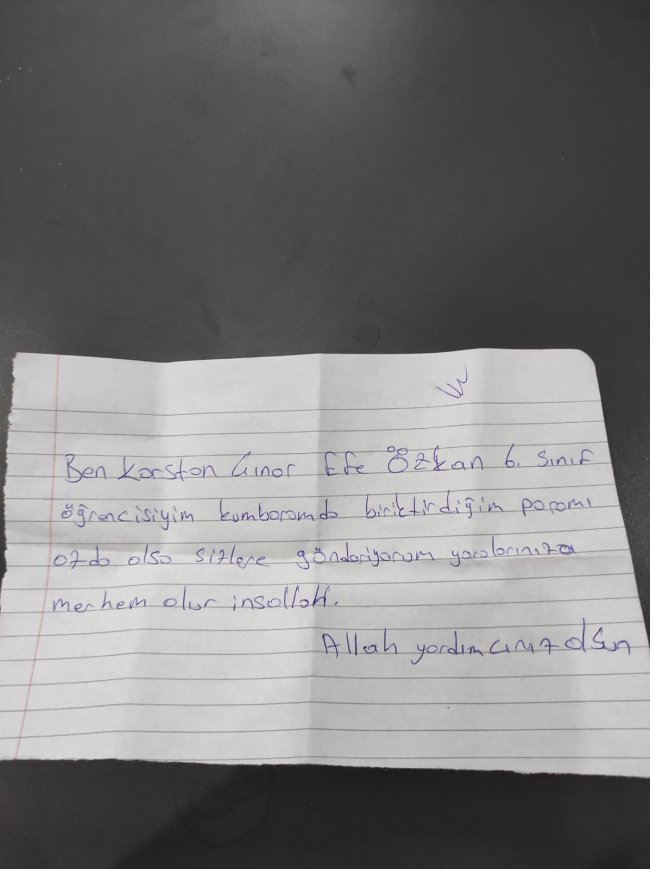 Ben Karstan Çınar Efe Özkan 6. Sınıf
öğrencisiyim kumbaramda biriktirdiğim paramı
azda olsa sizlere gönderiyorum yaralarınıza
merhem olur insallah.
Allah yardımcınız olsun